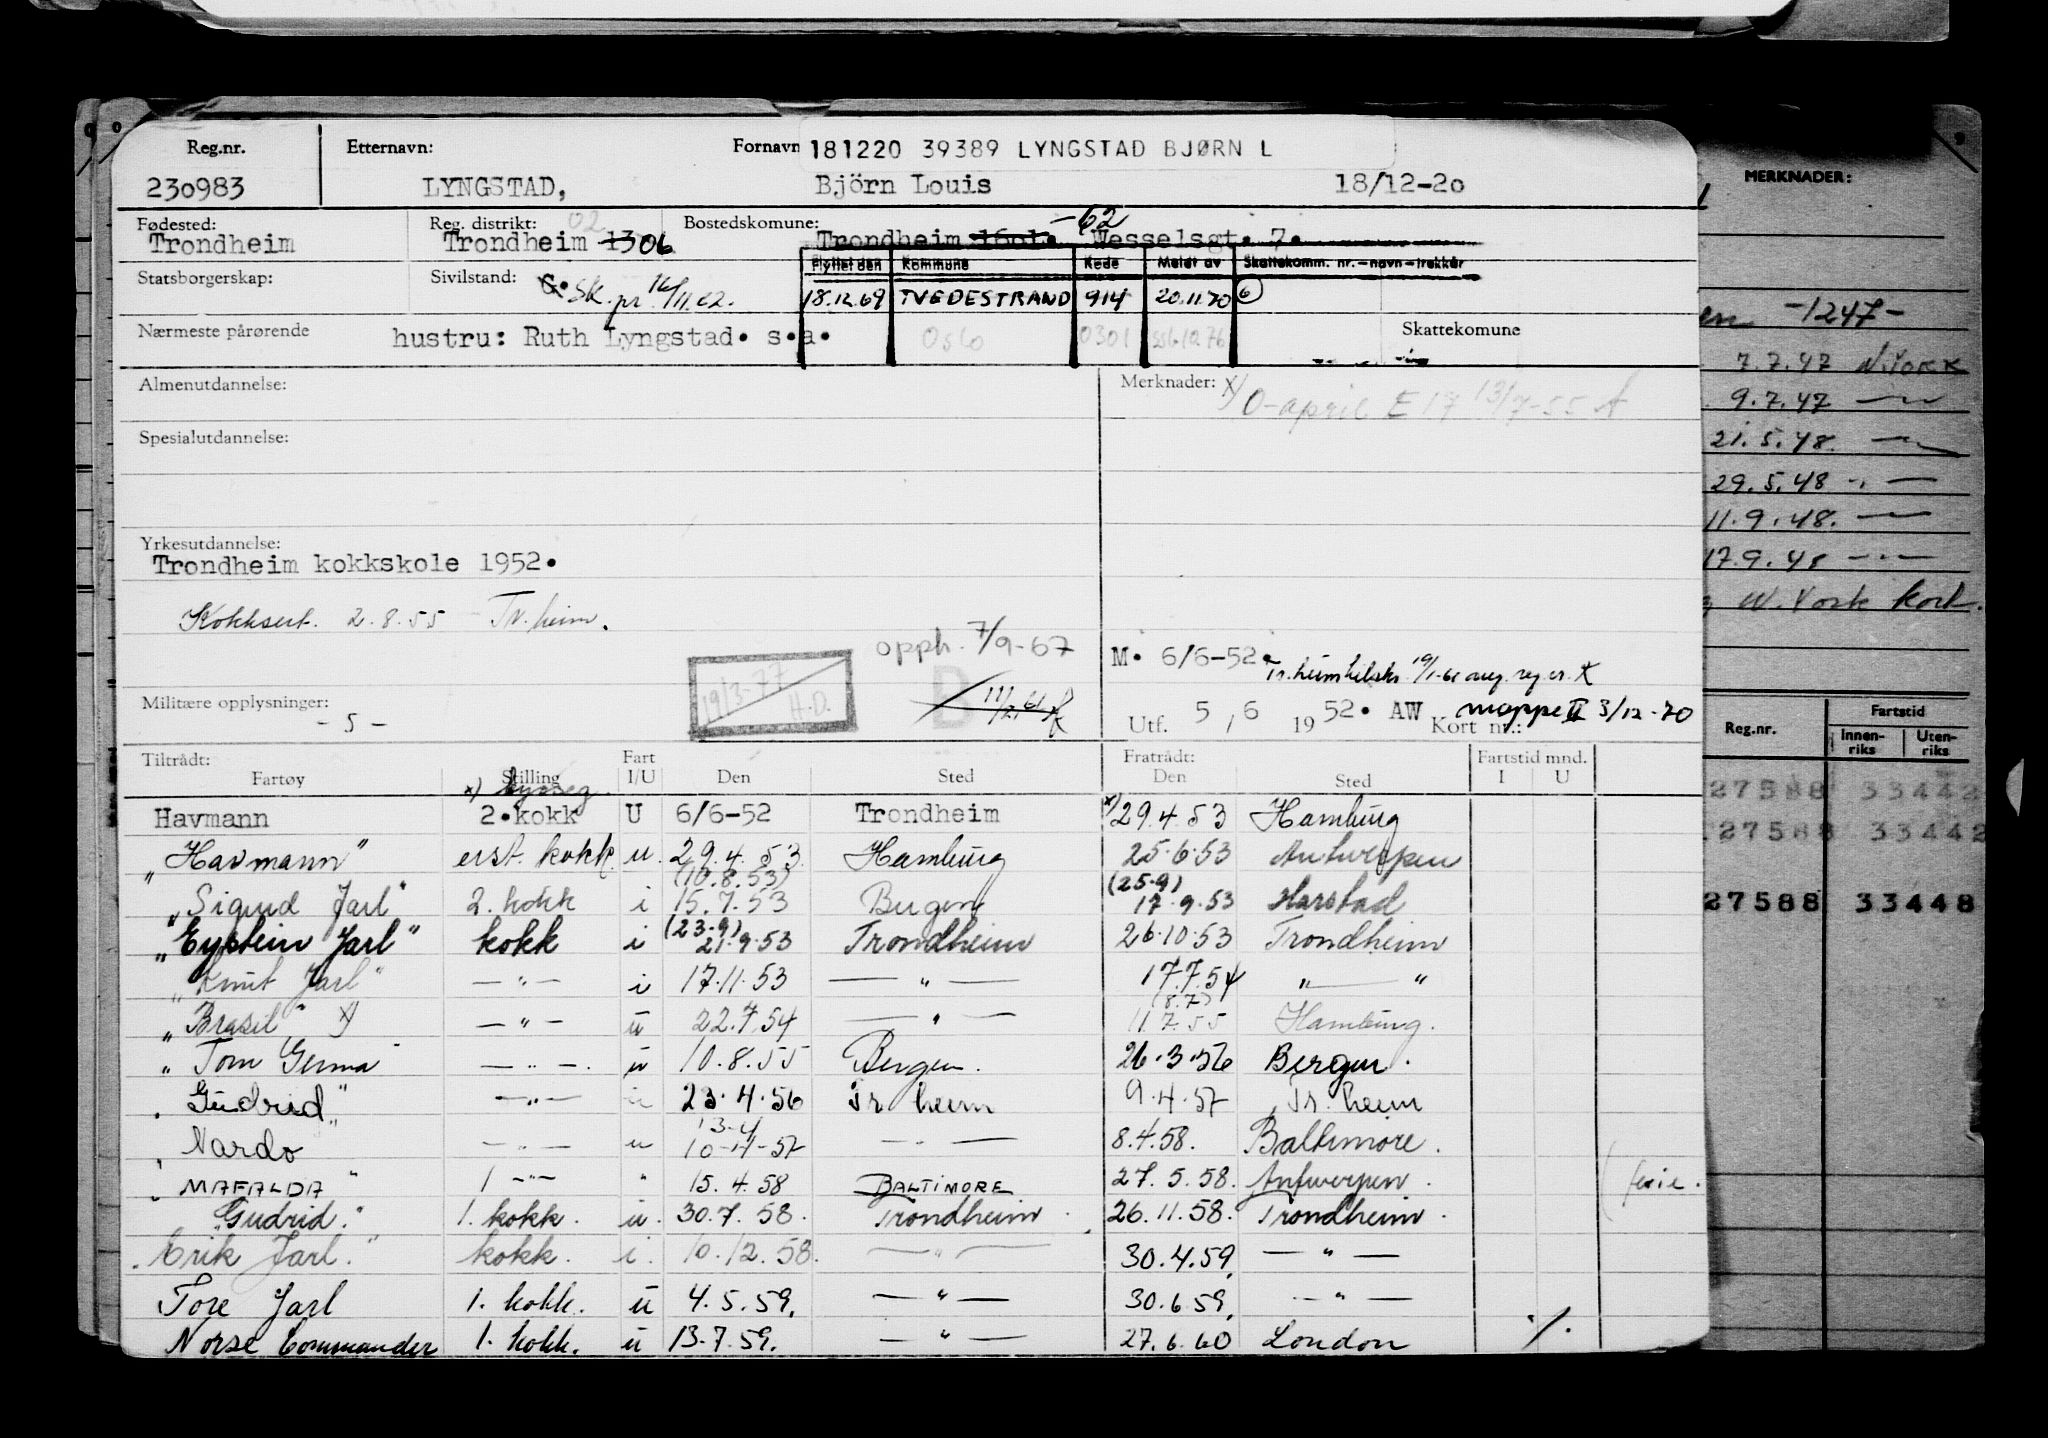 Reg.nr. Etternavn: Fornavn 181220 39389 LYNGSTAD BJØRN L
230983 LYNGSTAD, Björn Louis 18/12-20
Fødested: Reg. distrikt: 02 Bostedskomune: -62
Trondheim Trondheim 1306 Trondheim 1601. Wesselsgt. 7.
Statsborgerskap: Sivilstand: G. Sk. pr. 16/11.62.
Flyttet den Kommune Kode Meldt av Skattekomm. nr.-navn-trekkår
18.12.69 TVEDESTRAND 914 20.11.70 6
Nærmeste pårørende hustru: Ruth Lyngstad. s.a. Oslo 0301 Skattekomune
Almenutdannelse: Merknader: x) O-april E 17 13/7-55
Spesialutdannelse:
Yrkesutdannelse:
Trondheim kokkskole 1952.
Kokksert. 2.8.55 - Tr.heim.
opph. 7/9-67
M. 6/6-52.
19/3-77 H.D.
D
Militære opplysninger: - 5 -
Utf. 5, 6 1952. AW Kort nr.: mappe II 3/12-70
Tiltrådt: Fart Fratrådt: Fartstid mnd.
Fartøy Stilling I/U Den Sted Den Sted I U
x) bysseg.
Havmann 2.kokk U 6/6-52 Trondheim x) 29.4.53 Hamburg
"Havmann" erst. kokk u. 29.4.53 Hamburg 25.6.53 Antwerpen
(10.8.53) (25.9)
"Sigurd Jarl" 2. kokk i 15.7.53 Bergen 17.9.53 Harstad
(23.9)
"Eystein Jarl" kokk i 21.9.53 Trondheim 26.10.53 Trondheim
"Knut Jarl" — " — i 17.11.53 — " — 17.7.54 " — "
(8.7)
"Brasil" x) — " — u 22.7.54 — " — 11.7.55 Hamburg.
"Tom Germa" — " — u 10.8.55 Bergen. 26.3.56 Bergen.
"Gudrid" — " — u 23.4.56 Tr heim 9.4.57 Tr. heim
13-4
"Nardo — " — u 10-4-57 — " — 8.4.58. Baltimore.
"MAFALDA" 1 — " — " 15.4.58 BALTIMORE 27.5.58. Antwerpen. ferie.
"Gudrid." 1. kokk. u. 30.7.58. Trondheim. 26.11.58. Trondheim.
"Erik Jarl." kokk. i. 10.12.58. — " — 30.4.59. — " —
Tore Jarl 1. kokk. u 4.5.59. — " — 30.6.59. — " —
Norse Commander 1. kokk. u 13.7.59. — " — 27.6.60 London
MERKNADER:
-1247-
7.7.47 N.York
9.7.47 — " —
21.5.48. — " —
29.5.48 — " —
11.9.48. — " —
17.9.48 — " —
N.York kort.
Reg.nr. Fartstid
Innen-riks Uten-riks
27588 33442
27588 33442
27588 33448